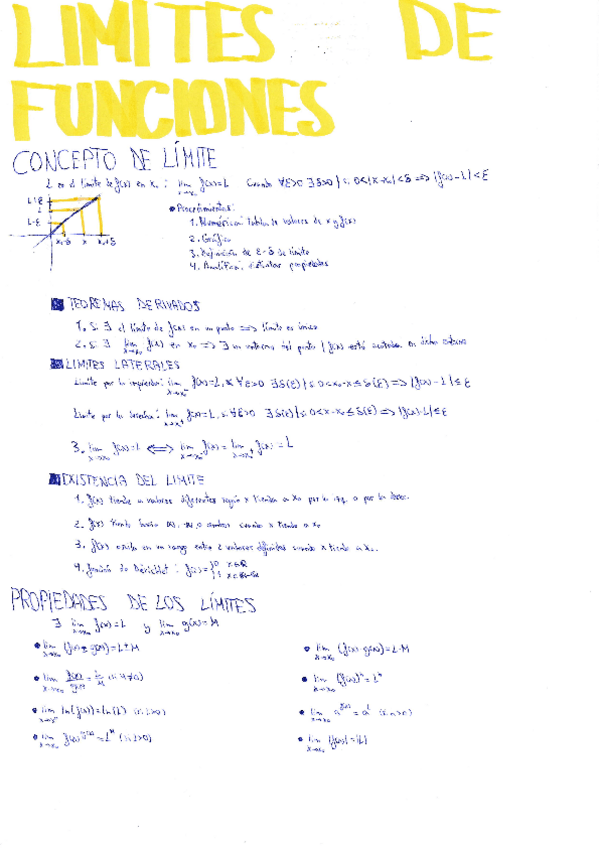 LIMITES DE
FUNCIONES
CONCEPTO DE LÍMITE
L es el límite de f(x) en x₀ : lim x→x₀ f(x)=L Cuando ∀ε>0 ∃δ>0 | si 0<|x-x₀|<δ => |f(x)-L|<ε
L+ε
L
L-ε
x₀-δ x x₀+δ
• Procedimientos:
1. Numérica: tablas de valores de x y f(x)
2. Gráfica
3. Definición de ε-δ de límite
4. Analítica: propiedades
TEOREMAS DERIVADOS
1. Si ∃ el límite de f(x) en un punto => límite es único
2. Si ∃ lim x→x₀ f(x) en x₀ => ∃ un entorno del punto | f(x) está acotada en dicho entorno
LIMITES LATERALES
Límite por la izquierda: lim x→x₀⁻ f(x)=L, si ∀ε>0 ∃δ(ε) | si 0<x₀-x≤δ(ε) => |f(x)-L|≤ε
Límite por la derecha: lim x→x₀⁺ f(x)=L, si ∀ε>0 ∃δ(ε) | si 0<x-x₀≤δ(ε) => |f(x)-L|≤ε
3. lim x→x₀ f(x)=L <=> lim x→x₀⁻ f(x)= lim x→x₀⁺ f(x) = L
EXISTENCIA DEL LIMITE
1. f(x) tiende a valores diferentes según x tienda a x₀ por la izq. o por la
2. f(x) tiende hacia ∞, -∞, o ambos cuando x tiende a x₀
3. f(x) oscila en un rango entre 2 valores definidos cuando x tiende a x₀.
4. función de Dirichlet : f(x)={0 x∈Q
PROPIEDADES DE LOS LÍMITES
∃ lim x→x₀ f(x)=L y lim x→x₀ g(x)=M
• lim x→x₀ (f(x)±g(x))=L±M
• lim x→x₀ (f(x)·g(x))=L·M
• lim x→x₀ f(x)/g(x) = L/M (si M≠0)
• lim x→x₀ (f(x))ⁿ=Lⁿ
• lim ln(f(x))=ln(L) (si L>0)
• lim x→x₀ a^f(x) = a^L (si a>0)
• lim x→x₀ f(x)^g(x)=L^M (si L>0)
• lim x→x₀ |f(x)|=|L|